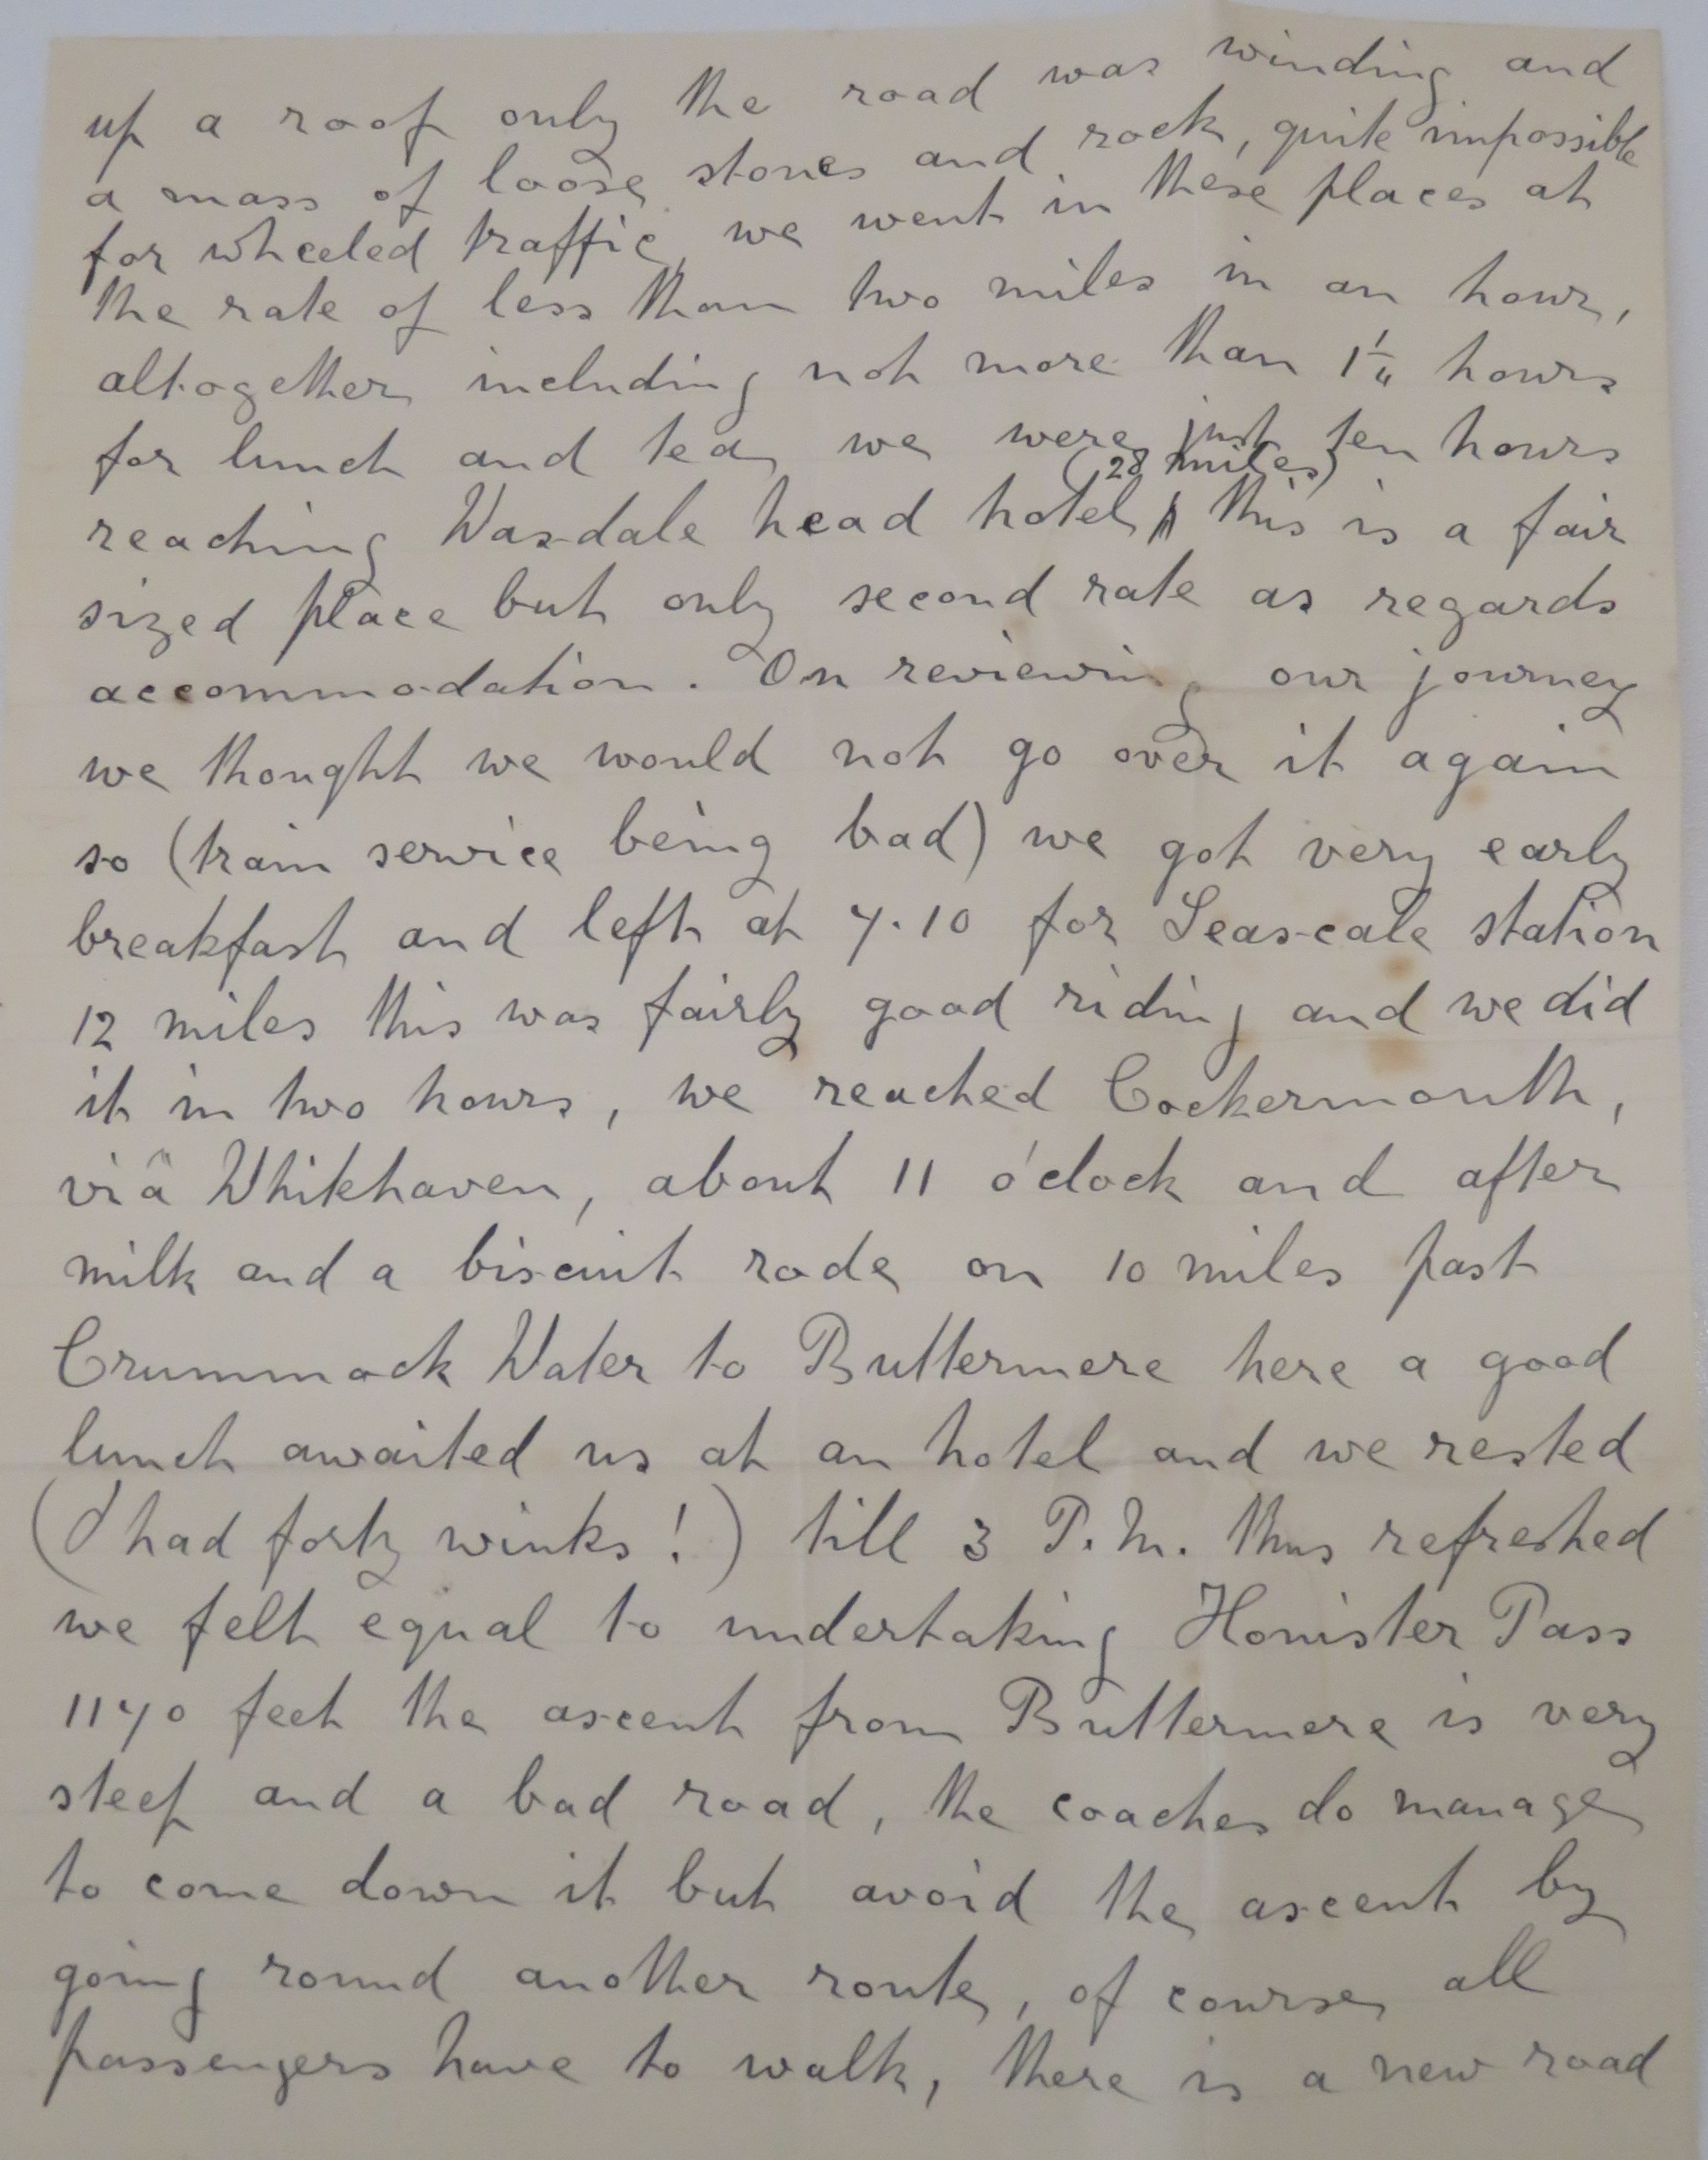 up a roof only the road was winding and
a mass of loose stones and rock, quite impossible
for wheeled traffic, we went in these places at
the rate of less than two miles in an hour,
altogether including not more than 1¼ hours
for lunch and tea we were just ten hours
(28 miles)
reaching Wasdale head hotel, this is a fair
sized place but only second rate as regards
accommodation. On reviewing our journey
we thought we would not go over it again
so (train service being bad) we got very early
breakfast and left at 7.10 for Seascale station
12 miles this was fairly good riding and we did
it in two hours, we reached Cockermouth,
viä Whitehaven, about 11 o'clock and after
milk and a biscuit rode on 10 miles past
Crummock Water to Buttermere here a good
lunch awaited us at an hotel and we rested
(I had forty winks!) till 3 P.M. thus refreshed
we felt equal to undertaking Honister Pass
1170 feet the ascent from Buttermere is very
steep and a bad road, the coaches do manage
to come down it but avoid the ascent by
going round another route, of course all
passengers have to walk, there is a new road